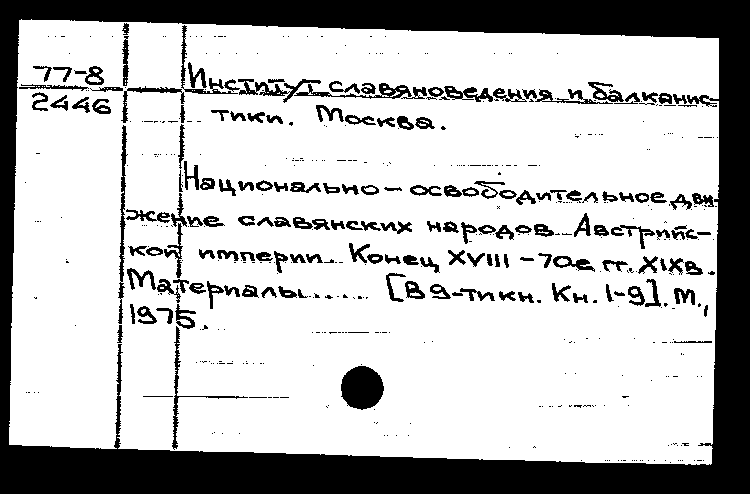 77-8
2446
Институт славяноведения и балканис-
тики. Москва.
Национально-освободительное дви-
жение славянских народов Австрийс-
кой империи. Конец XVIII - 70е гг. XIXв.
Материалы..... [В 9-ти кн. Кн. 1-9]. М.,
1975.